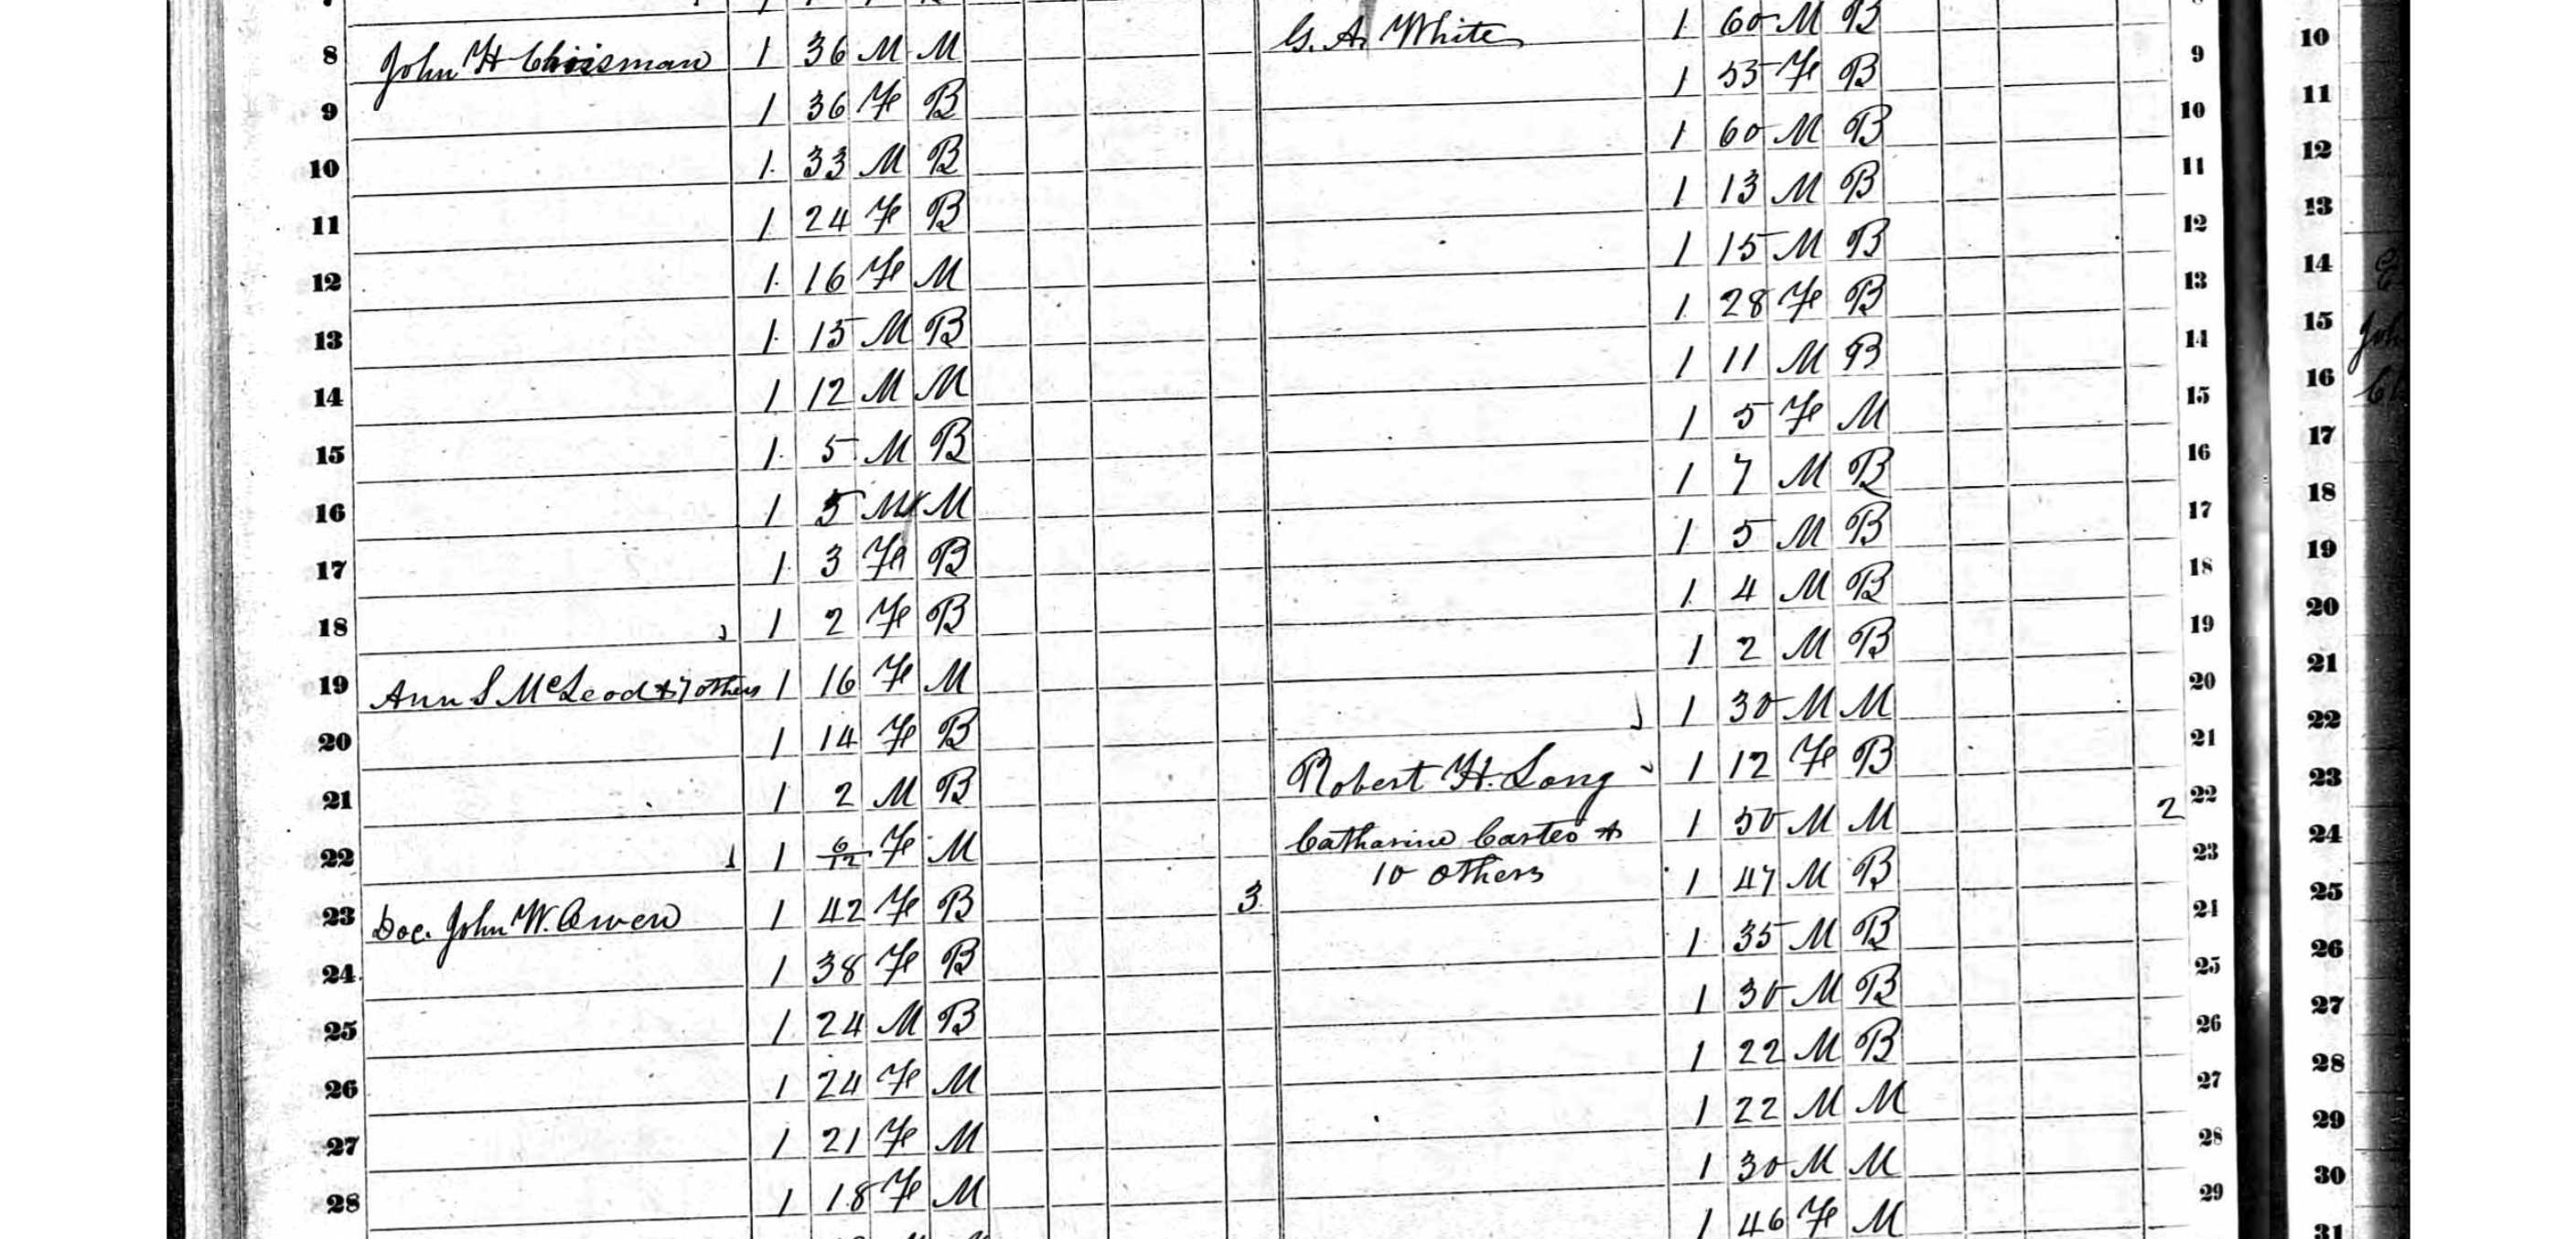 8 John H Chrisman 1 36 M M
9 1 36 Fe B
10 1 33 M B
11 1 24 Fe B
12 1 16 Fe M
13 1 15 M B
14 1 12 M M
15 1 5 M B
16 1 5 M M
17 1 3 Fe B
18 1 2 Fe B
19 Ann S McLeod & 7 others 1 16 Fe M
20 1 14 Fe B
21 1 2 M B
22 1 6/12 Fe M
23 Doc. John W. Owen 1 42 Fe B 3
24 1 38 Fe B
25 1 24 M B
26 1 24 Fe M
27 1 21 Fe M
28 1 18 Fe M
G. A. White 1 60 M B
1 55 Fe B 9
1 60 M B 10
1 13 M B 11
1 15 M B 12
1 28 Fe B 13
1 11 M B 14
1 5 Fe M 15
1 7 M B 16
1 5 M B 17
1 4 M B 18
1 2 M B 19
1 30 M M 20
Robert H. Long 1 12 Fe B 21
Catharine Carter & 1 50 M M 2 22
10 others 1 47 M B 23
1 35 M B 24
1 30 M B 25
1 22 M B 26
1 22 M M 27
1 30 M M 28
1 46 Fe M 29
10
11
12
13
14
15 Joh
16
17
18
19
20
21
22
23
24
25
26
27
28
29
30
31